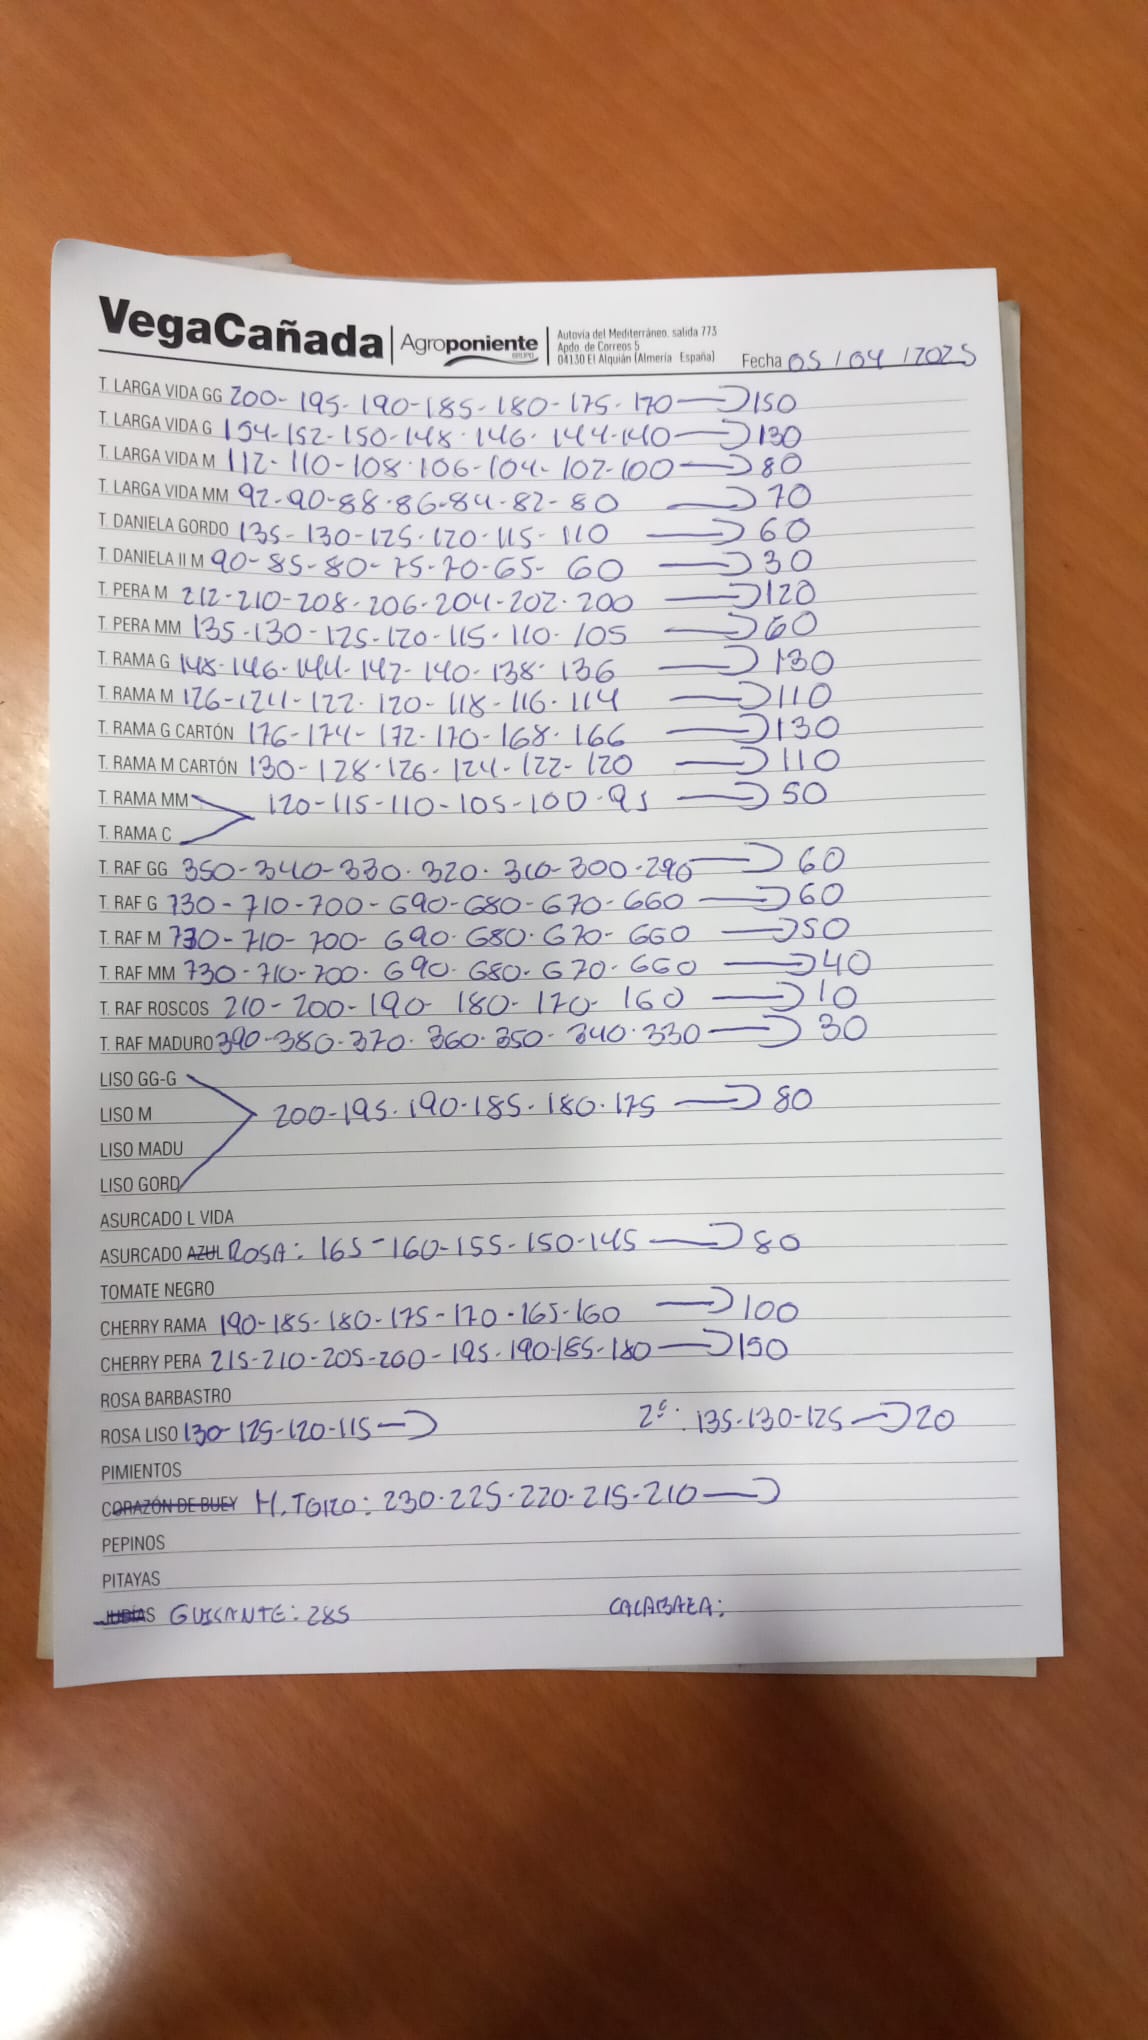 VegaCañada | Agroponiente GRUPO
Autovía del Mediterráneo, salida 773
Apdo. de Correos 5
04130 El Alquián (Almería España)
Fecha 05/04/2025
T. LARGA VIDA GG 200-195-190-185-180-175-170 → 150
T. LARGA VIDA G 154-152-150-148-146-144-140 → 130
T. LARGA VIDA M 112-110-108-106-104-102-100 → 80
T. LARGA VIDA MM 92-90-88-86-84-82-80 → 70
T. DANIELA GORDO 135-130-125-120-115-110 → 60
T. DANIELA II M 90-85-80-75-70-65-60 → 30
T. PERA M 212-210-208-206-204-202-200 → 120
T. PERA MM 135-130-125-120-115-110-105 → 60
T. RAMA G 148-146-144-142-140-138-136 → 130
T. RAMA M 126-124-122-120-118-116-114 → 110
T. RAMA G CARTÓN 176-174-172-170-168-166 → 130
T. RAMA M CARTÓN 130-128-126-124-122-120 → 110
T. RAMA MM 120-115-110-105-100-95 → 50
T. RAMA C
T. RAF GG 350-340-330-320-310-300-290 → 60
T. RAF G 730-710-700-690-680-670-660 → 60
T. RAF M 730-710-700-690-680-670-660 → 50
T. RAF MM 730-710-700-690-680-670-660 → 40
T. RAF ROSCOS 210-200-190-180-170-160 → 10
T. RAF MADURO 390-380-370-360-350-340-330 → 30
LISO GG-G
LISO M 200-195-190-185-180-175 → 80
LISO MADU
LISO GORD
ASURCADO L VIDA
ASURCADO AZUL ROSA: 165-160-155-150-145 → 80
TOMATE NEGRO
CHERRY RAMA 190-185-180-175-170-165-160 → 100
CHERRY PERA 215-210-205-200-195-190-185-180 → 150
ROSA BARBASTRO
ROSA LISO 130-125-120-115 → 2ª: 135-130-125 → 20
PIMIENTOS
CORAZÓN DE BUEY H. TORO: 230-225-220-215-210 →
PEPINOS
PITAYAS
JUDÍAS GUISANTE: 285 CALABAZA: